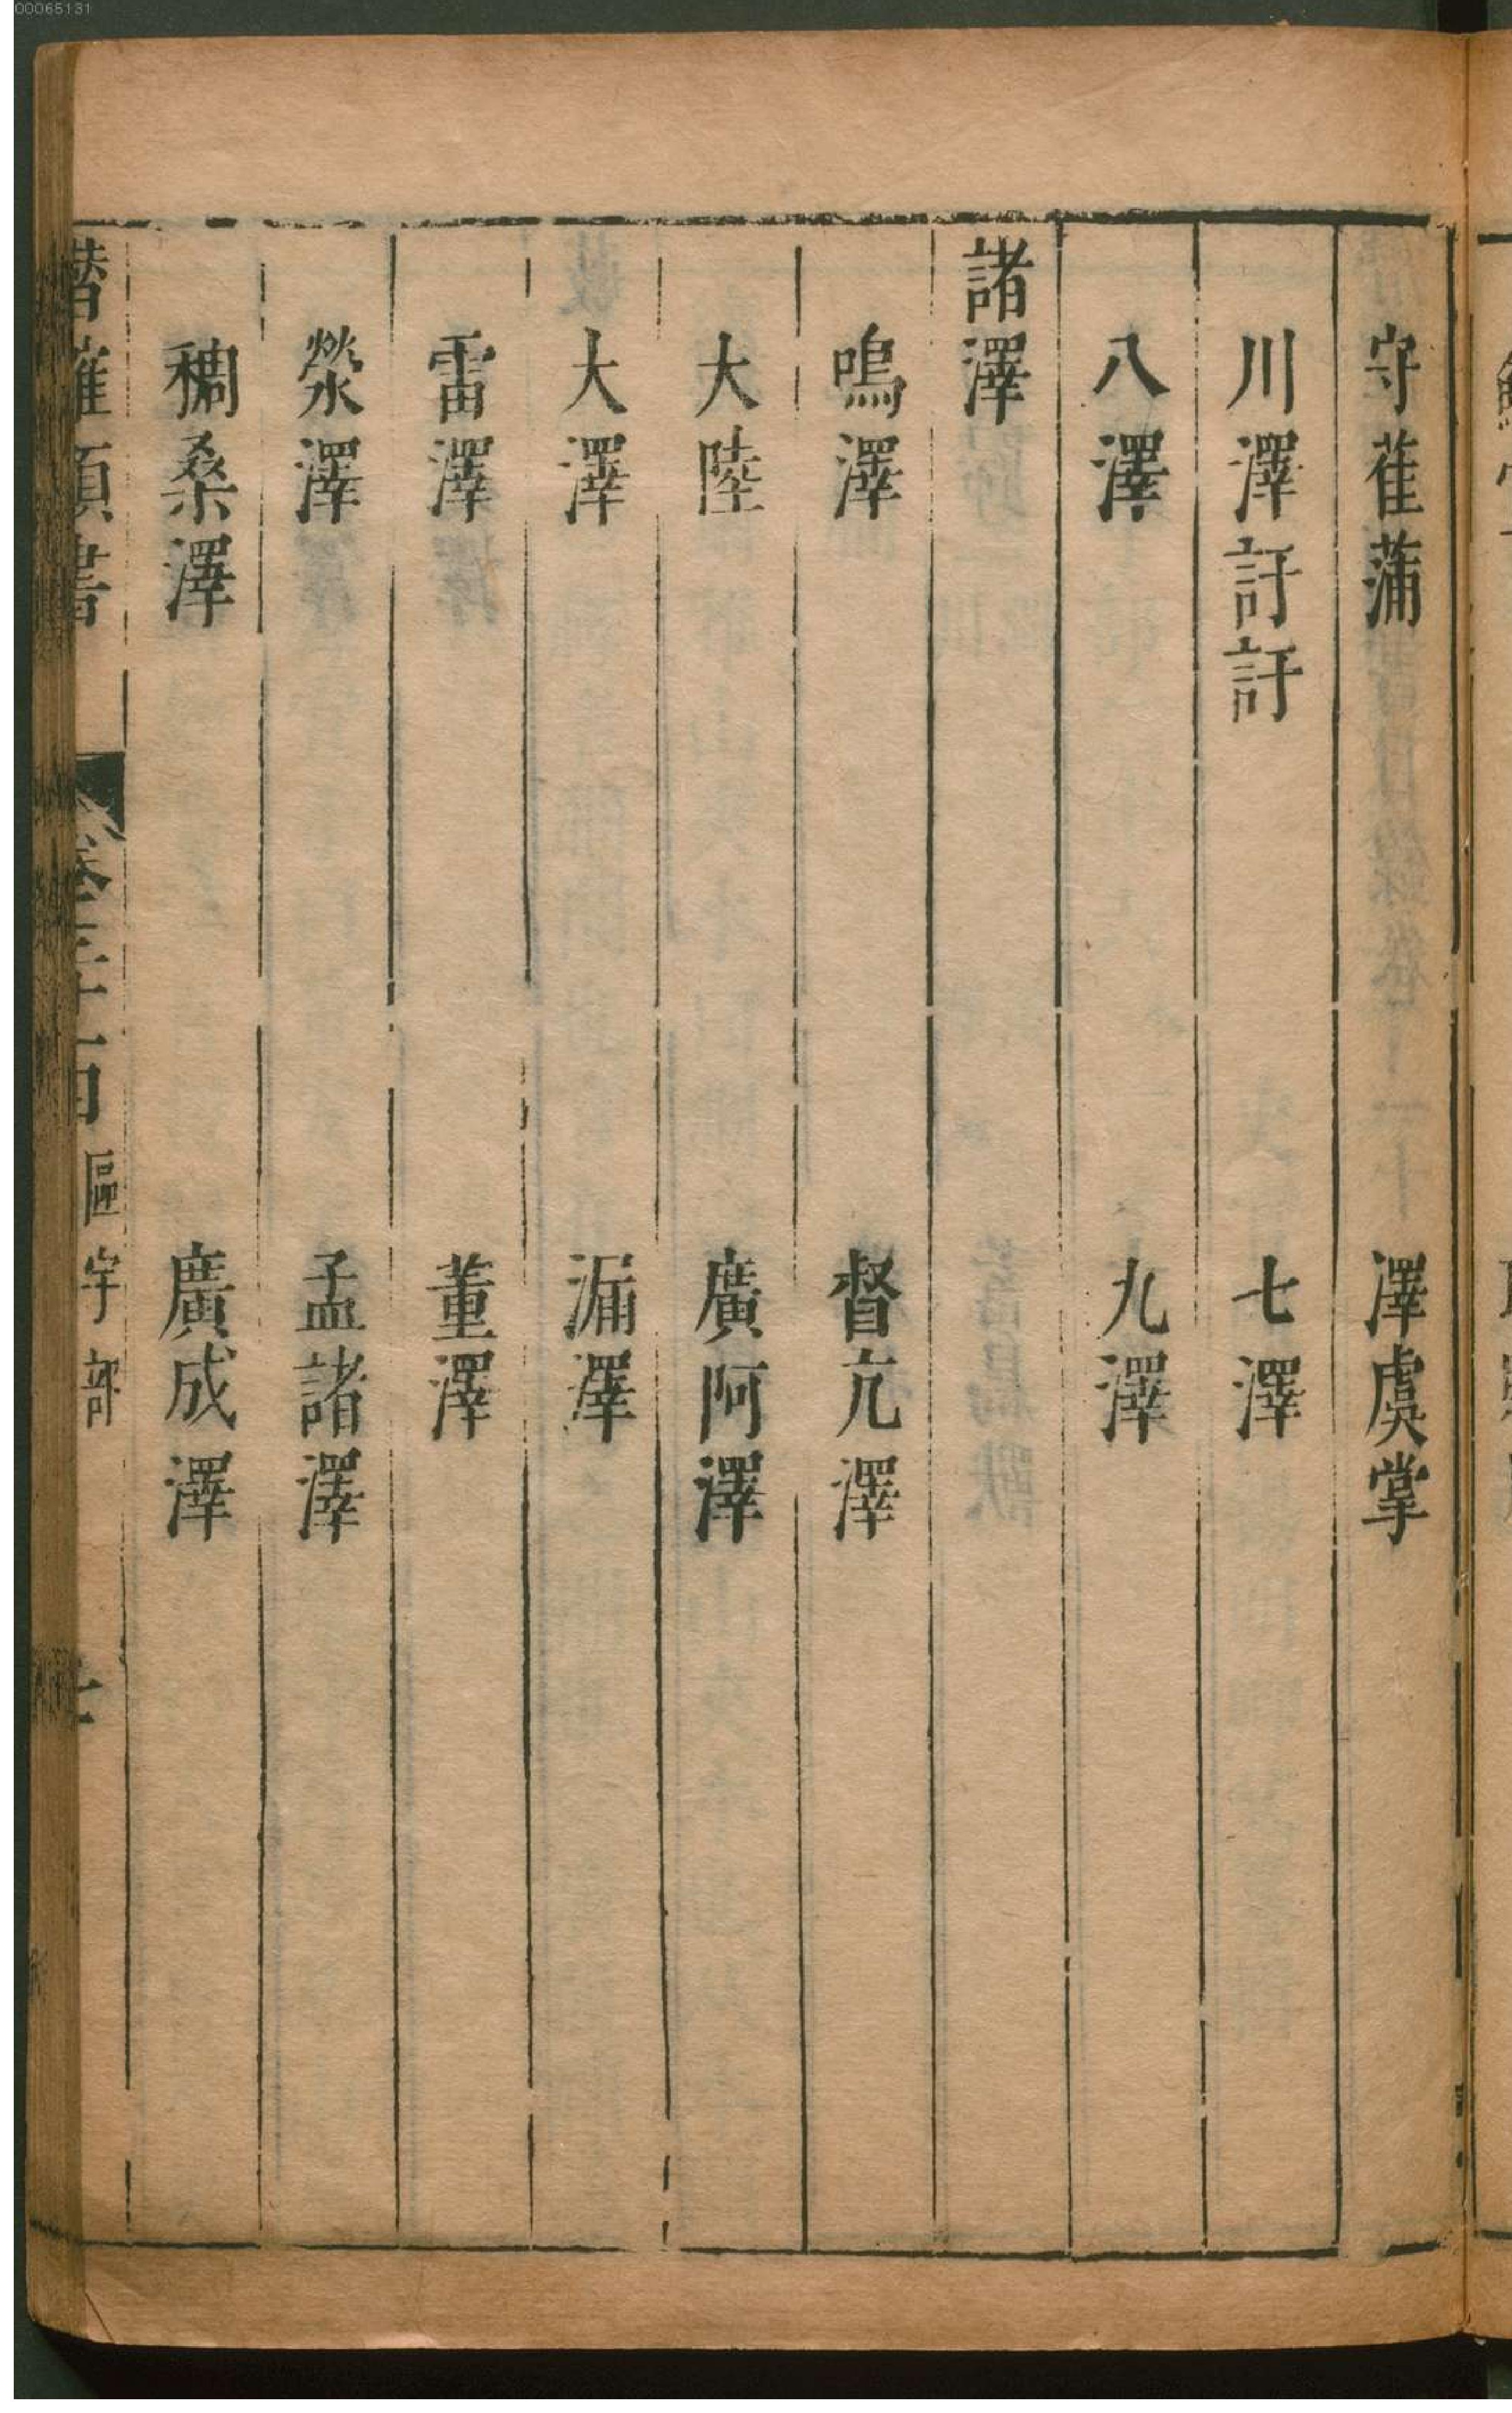 00065131
守萑蒲 澤虞掌
川澤訏訏 七澤
八澤 九澤
諸澤
鳴澤 督亢澤
大陸 廣阿澤
大澤 漏澤
雷澤 董澤
滎澤 孟諸澤
稠桑澤 廣成澤
潛確類書 卷 區宇部